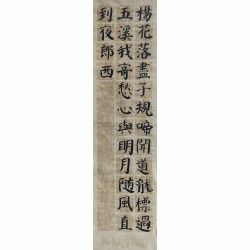 楊花落盡子規啼聞道龍標過
五溪我寄愁心與明月随風直
到夜郎西